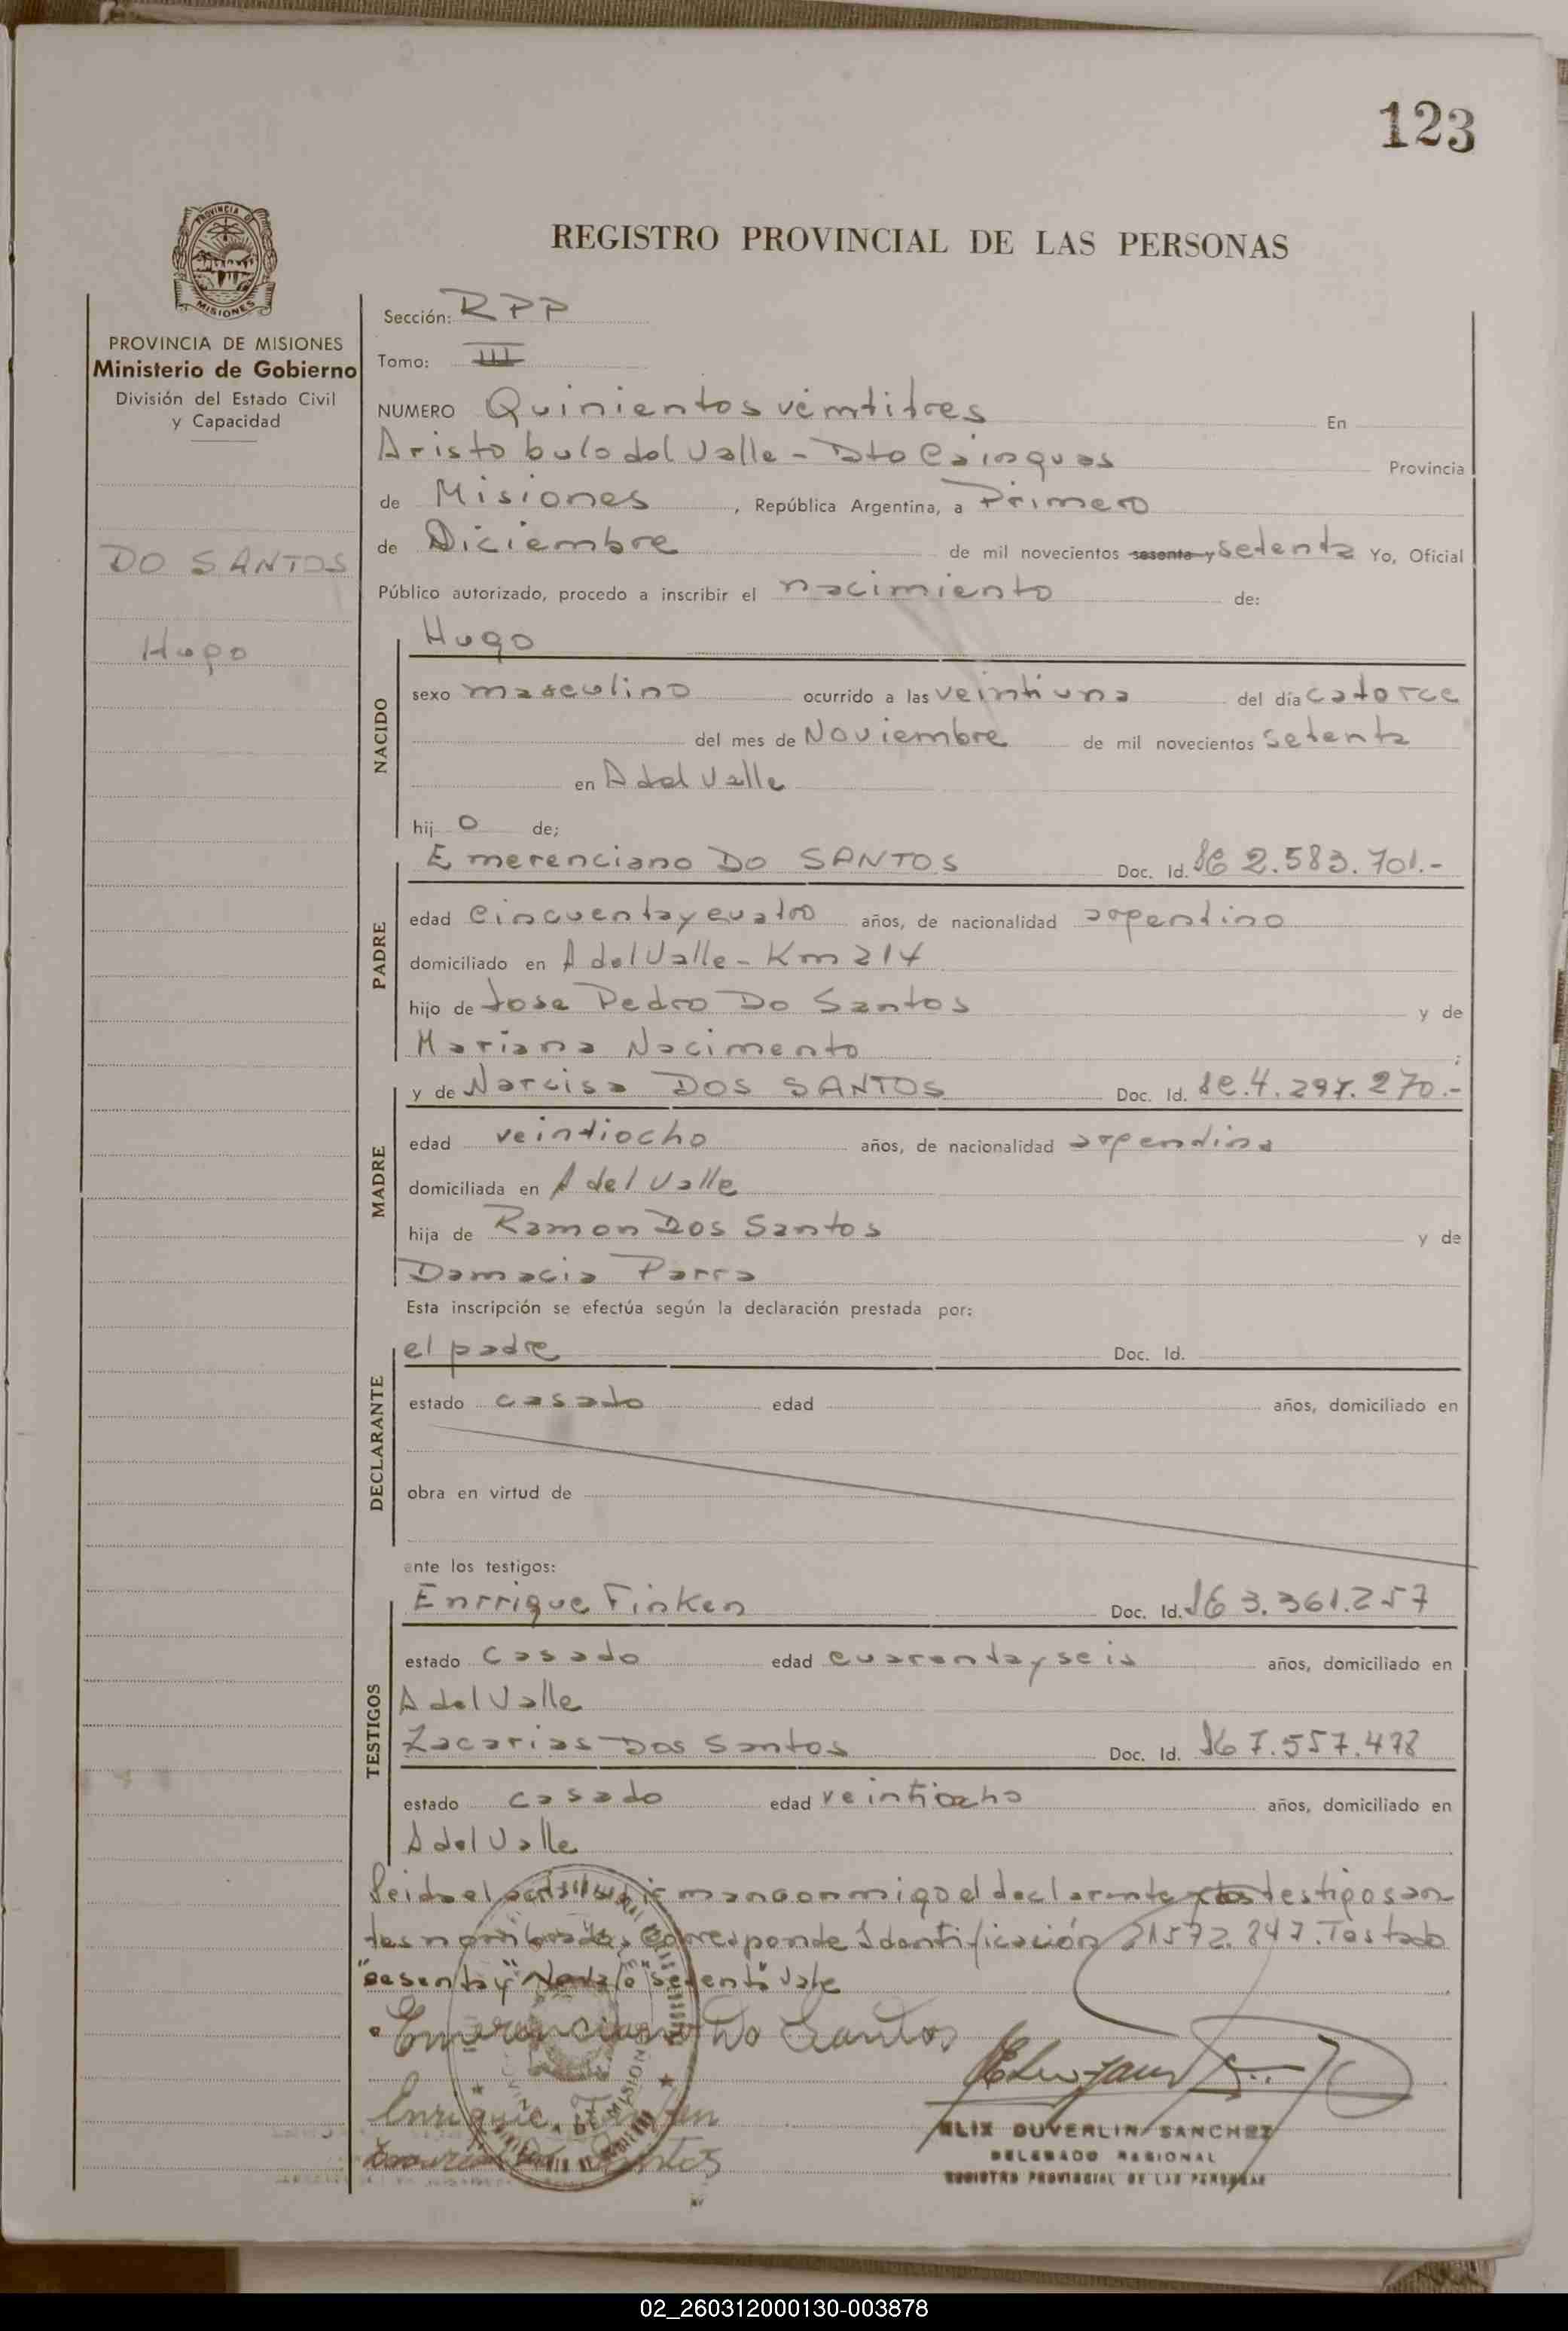 123
PROVINCIA DE
MISIONES
PROVINCIA DE MISIONES
Ministerio de Gobierno
División del Estado Civil
y Capacidad
DO SANTOS
Hugo
REGISTRO PROVINCIAL DE LAS PERSONAS
Sección: RPP
Tomo: III
NUMERO Quinientos veintitres En
Aristobulo del Valle - Dto Cainguas Provincia
de Misiones, República Argentina, a Primero
de Diciembre de mil novecientos sesenta y setenta Yo, Oficial
Público autorizado, procedo a inscribir el nacimiento de:
Hugo
NACIDO
sexo masculino ocurrido a las veintiuna del día catorce
del mes de Noviembre de mil novecientos setenta
en A del Valle
hij o de;
PADRE
Emerenciano DO SANTOS Doc. Id. 2.583.701.-
edad cincuenta y cuatro años, de nacionalidad argentino
domiciliado en A del Valle - Km 214
hijo de Jose Pedro Do Santos y de
Mariana Nacimento
MADRE
y de Narcisa DOS SANTOS Doc. Id. 4.297.270.-
edad veintiocho años, de nacionalidad argentina
domiciliada en A del Valle
hija de Ramon Dos Santos y de
Damacia Parra
Esta inscripción se efectúa según la declaración prestada por:
DECLARANTE
el padre Doc. Id.
estado casado edad años, domiciliado en
obra en virtud de
ante los testigos:
TESTIGOS
Enrrique Finken Doc. Id. 3.361.257
estado casado edad cuarenta y seis años, domiciliado en
A del Valle
Zacarias Dos Santos Doc. Id. 7.557.478
estado casado edad veintiocho años, domiciliado en
A del Valle
Leida el acta conmigo el declarante y los testigos an
tes nombrados. Corresponde Identificación 21572.247. Tostado
"sesenta y" "setenta" Vale
Emerenciano Do Santos
Enrique Finken
Santos
ELIX DUVERLIN SANCHEZ
DELEGADO REGIONAL
REGISTRO PROVINCIAL DE LAS PERSONAS
02_260312000130-003878